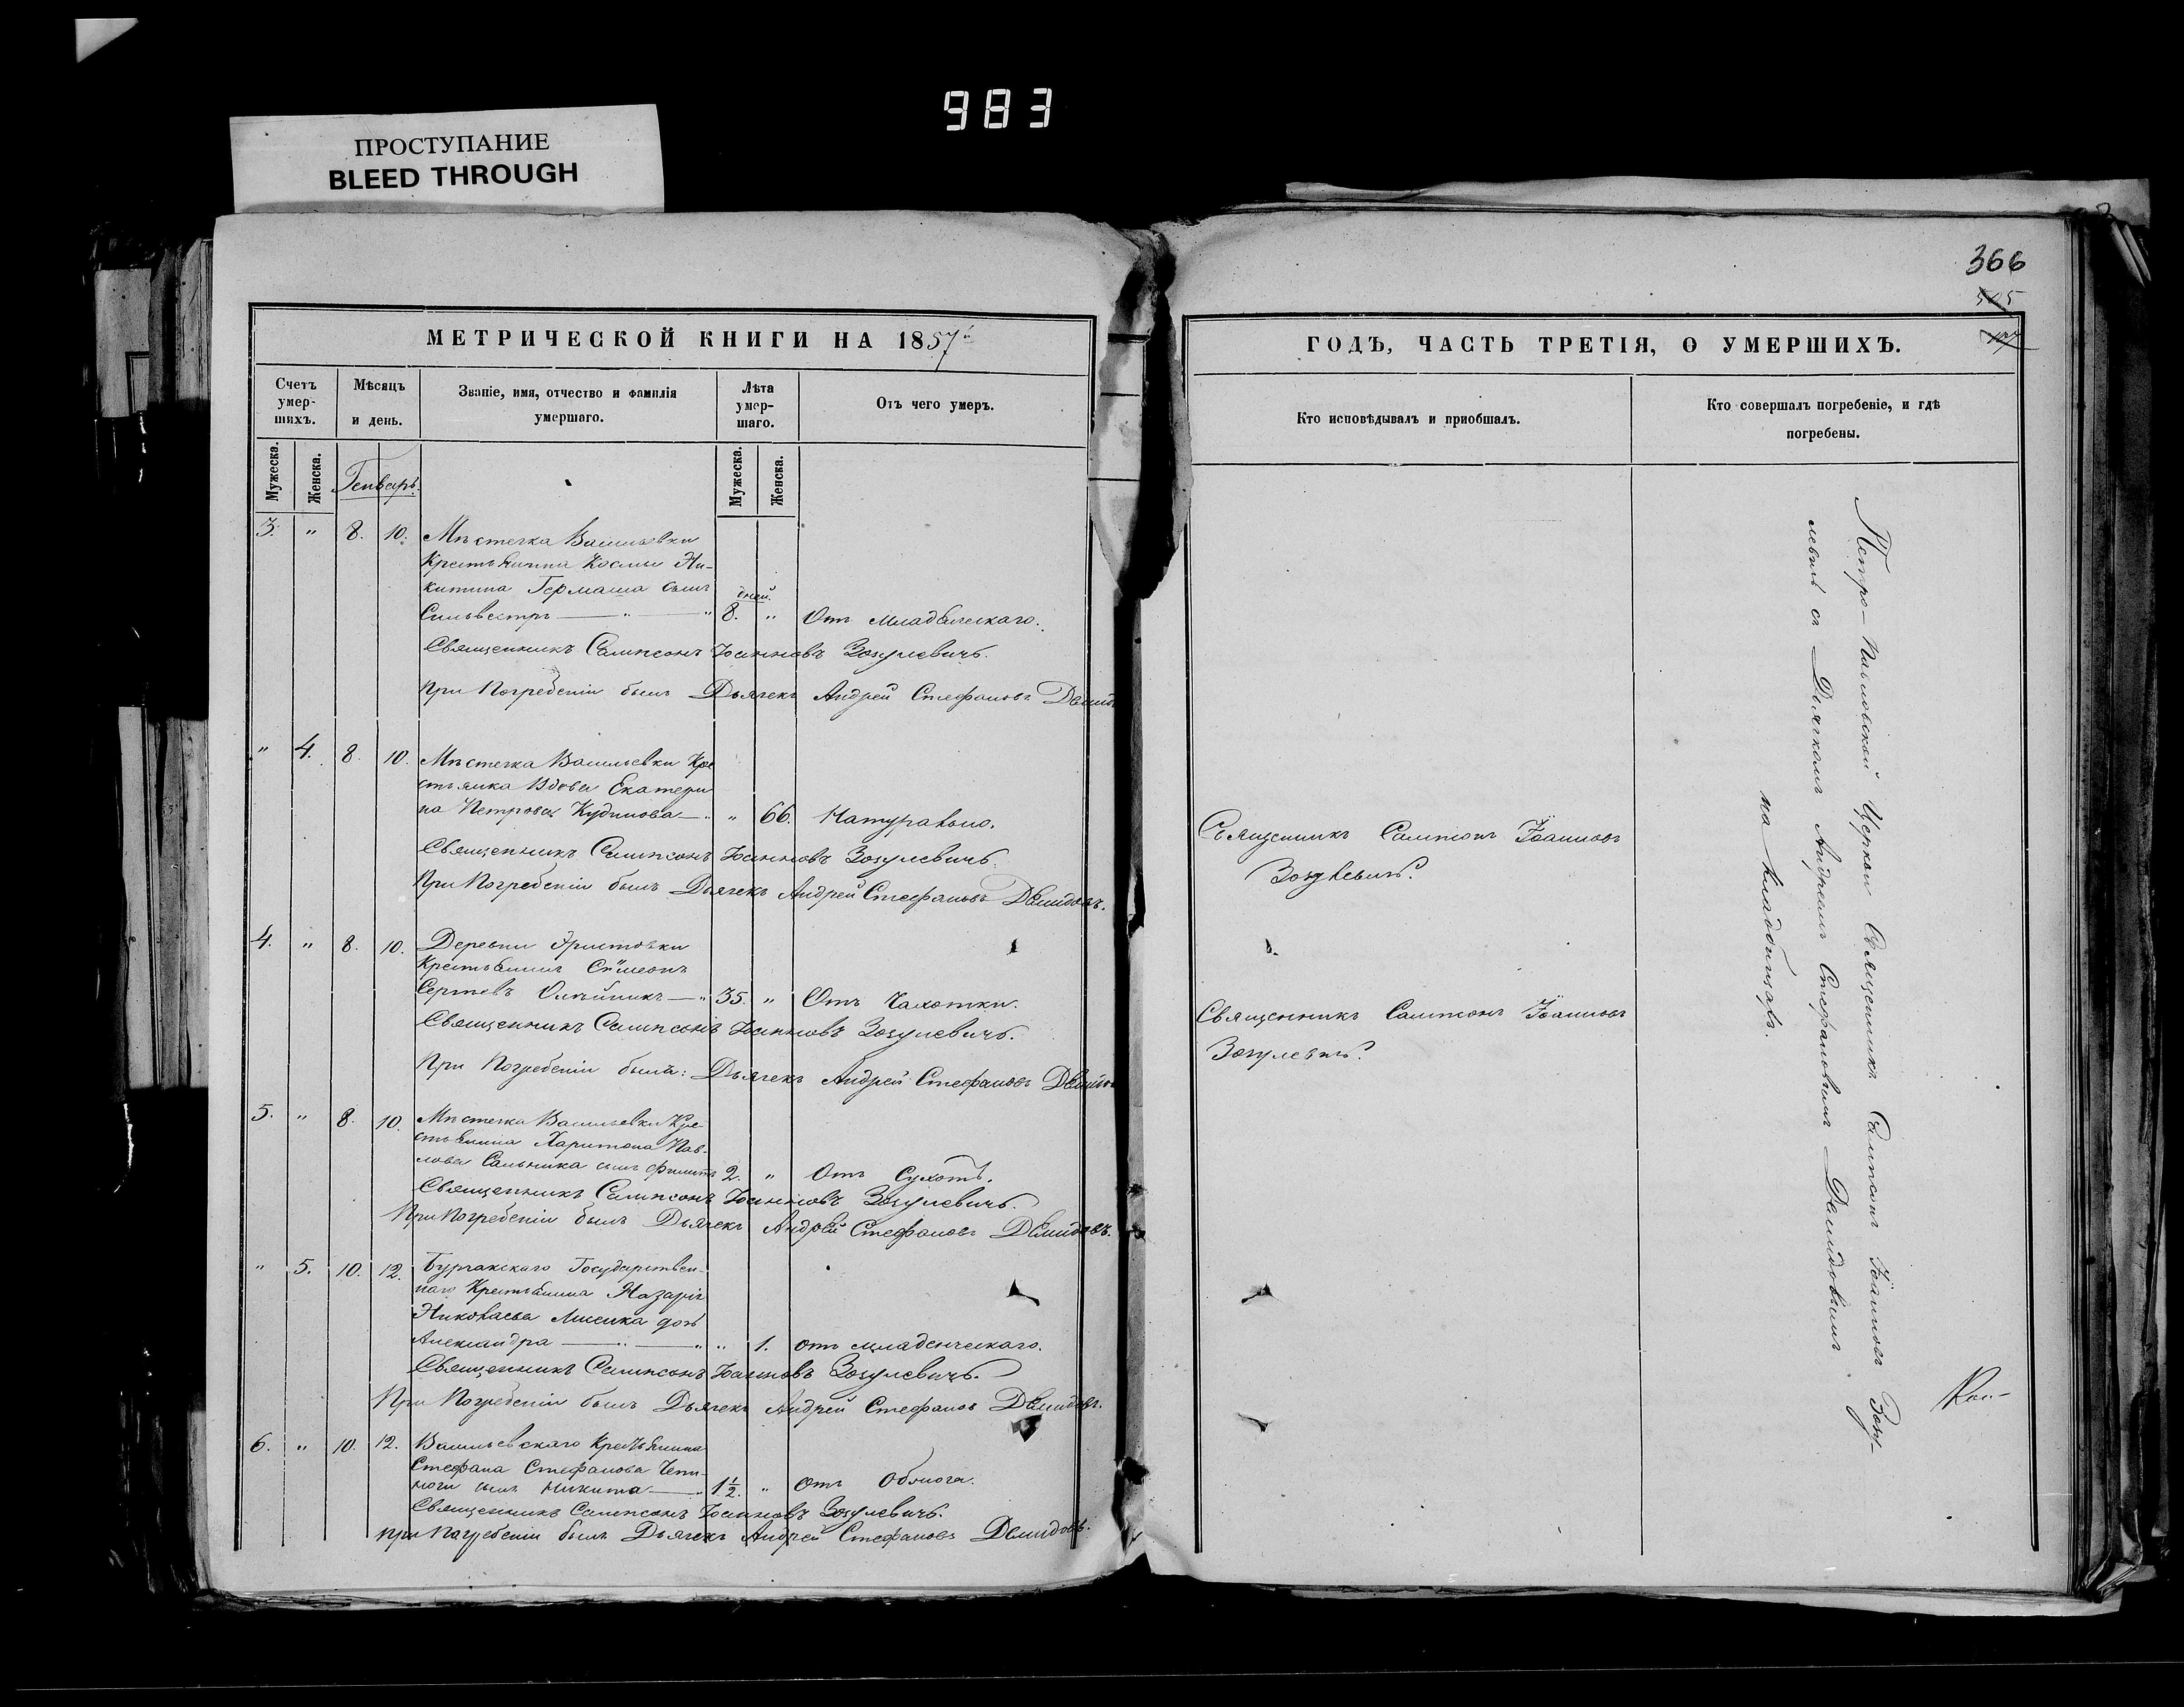 983
ПРОСТУПАНИЕ
BLEED THROUGH
МЕТРИЧЕСКОЙ КНИГИ НА 1857й
Счетъ умер-шихъ.
Мѣсяцъ и день.
Званіе, имя, отчество и фамилія умершаго.
Лѣта умер-шаго.
Отъ чего умеръ.
Мужеска. Женска. Генварь. Мужеска. Женска.
3. " 8. 10. Мѣстечка Васильевки
Крестьянина Космы Ни-
китина Гермаша сынъ
дней.
Сильвестръ — " — " 8. " Отъ младенческаго.
Священникъ Сампсонъ Іоанновъ Зозулевичъ.
При Погребеніи былъ Дьячекъ Андрей Стефановъ
" 4. 8. 10. Мѣстечка Васильевки Кре
стьянка Вдова Екатери
на Петрова Кудинова — " " 66. Натурально.
Священникъ Сампсонъ Іоанновъ Зозулевичъ.
При Погребеніи былъ Дьячекъ Андрей Стефановъ Демидовъ.
4. " 8. 10. Деревни Эристовки
Крестьянинъ Сѵмеонъ
Сергіевъ Олейникъ — " 35. " Отъ Чахотки.
Священникъ Сампсонъ Іоанновъ Зозулевичъ.
При Погребеніи былъ: Дьячекъ Андрей Стефановъ
5. " 8. 10. Мѣстечка Васильевки Кре-
стьянина Харитона Пав-
лова Сальника сынъ Филиппъ 2. " Отъ Сухотъ.
Священникъ Сампсонъ Іоанновъ Зозулевичъ.
При Погребеніи былъ Дьячекъ Андрей Стефановъ Демидовъ.
" 5. 10. 12. Бурчакскаго Государствен-
наго Крестьянина Назарія
Николаева Лисика дочь
Александра — " — " " 1. отъ младенческаго.
Священникъ Сампсонъ Іоанновъ Зозулевичъ.
При Погребеніи былъ Дьячекъ Андрей Стефановъ Демидовъ.
6. " 10. 12. Васильевскаго Крестьянина
Стефана Стефанова Чепи-
ноги сынъ Никита — " 1½. " Отъ Обмога.
Священникъ Сампсонъ Іоанновъ Зозулевичъ.
при Погребеніи былъ Дьячекъ Андрей Стефановъ Демидовъ.
366
505
ГОДЪ, ЧАСТЬ ТРЕТІЯ, О УМЕРШИХЪ.
Кто исповѣдывалъ и приобшалъ.
Кто совершалъ погребеніе, и гдѣ погребены.
Священникъ Сампсонъ Іоанновъ
Зозулевичъ.
Священникъ Сампсонъ Іоанновъ
Зозулевичъ.
Петро-Павловской Церкви Священникъ Сампсонъ Іоанновъ Зозу-
левичъ съ Дьячкомъ Андреемъ Стефановымъ Демидовымъ
на кладбищахъ.